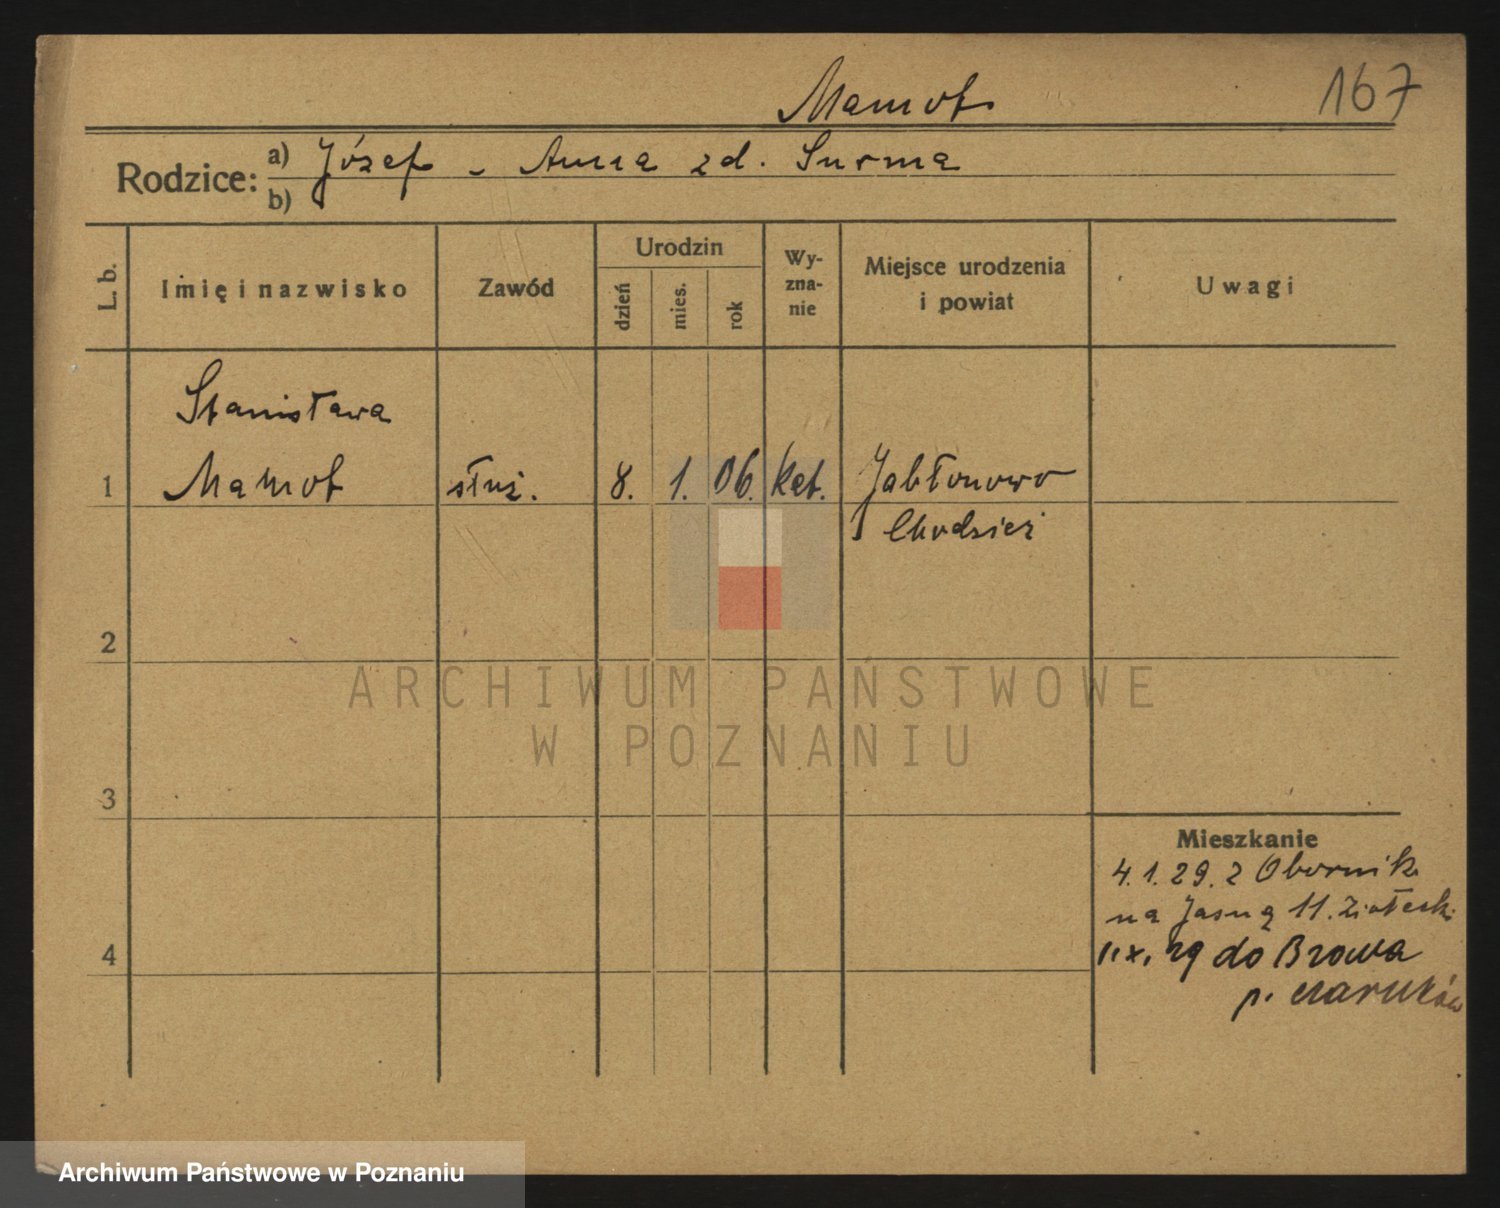 Mamot
167
Rodzice:
a) Józef - Anna zd. Surma
b)
L. b.
Imię i nazwisko
Zawód
Urodzin
dzień
mies.
rok
Wy-
zna-
nie
Miejsce urodzenia
i powiat
Uwagi
Stanisława
1 Mamot służ. 8. 1. 06. kat. Jabłonowo
Chodzież
2
3
4
ARCHIWUM PAŃSTWOWE
W POZNANIU
Mieszkanie
4.1.29. z Obornik
na Jasną 11.
29 do
p.
Archiwum Państwowe w Poznaniu